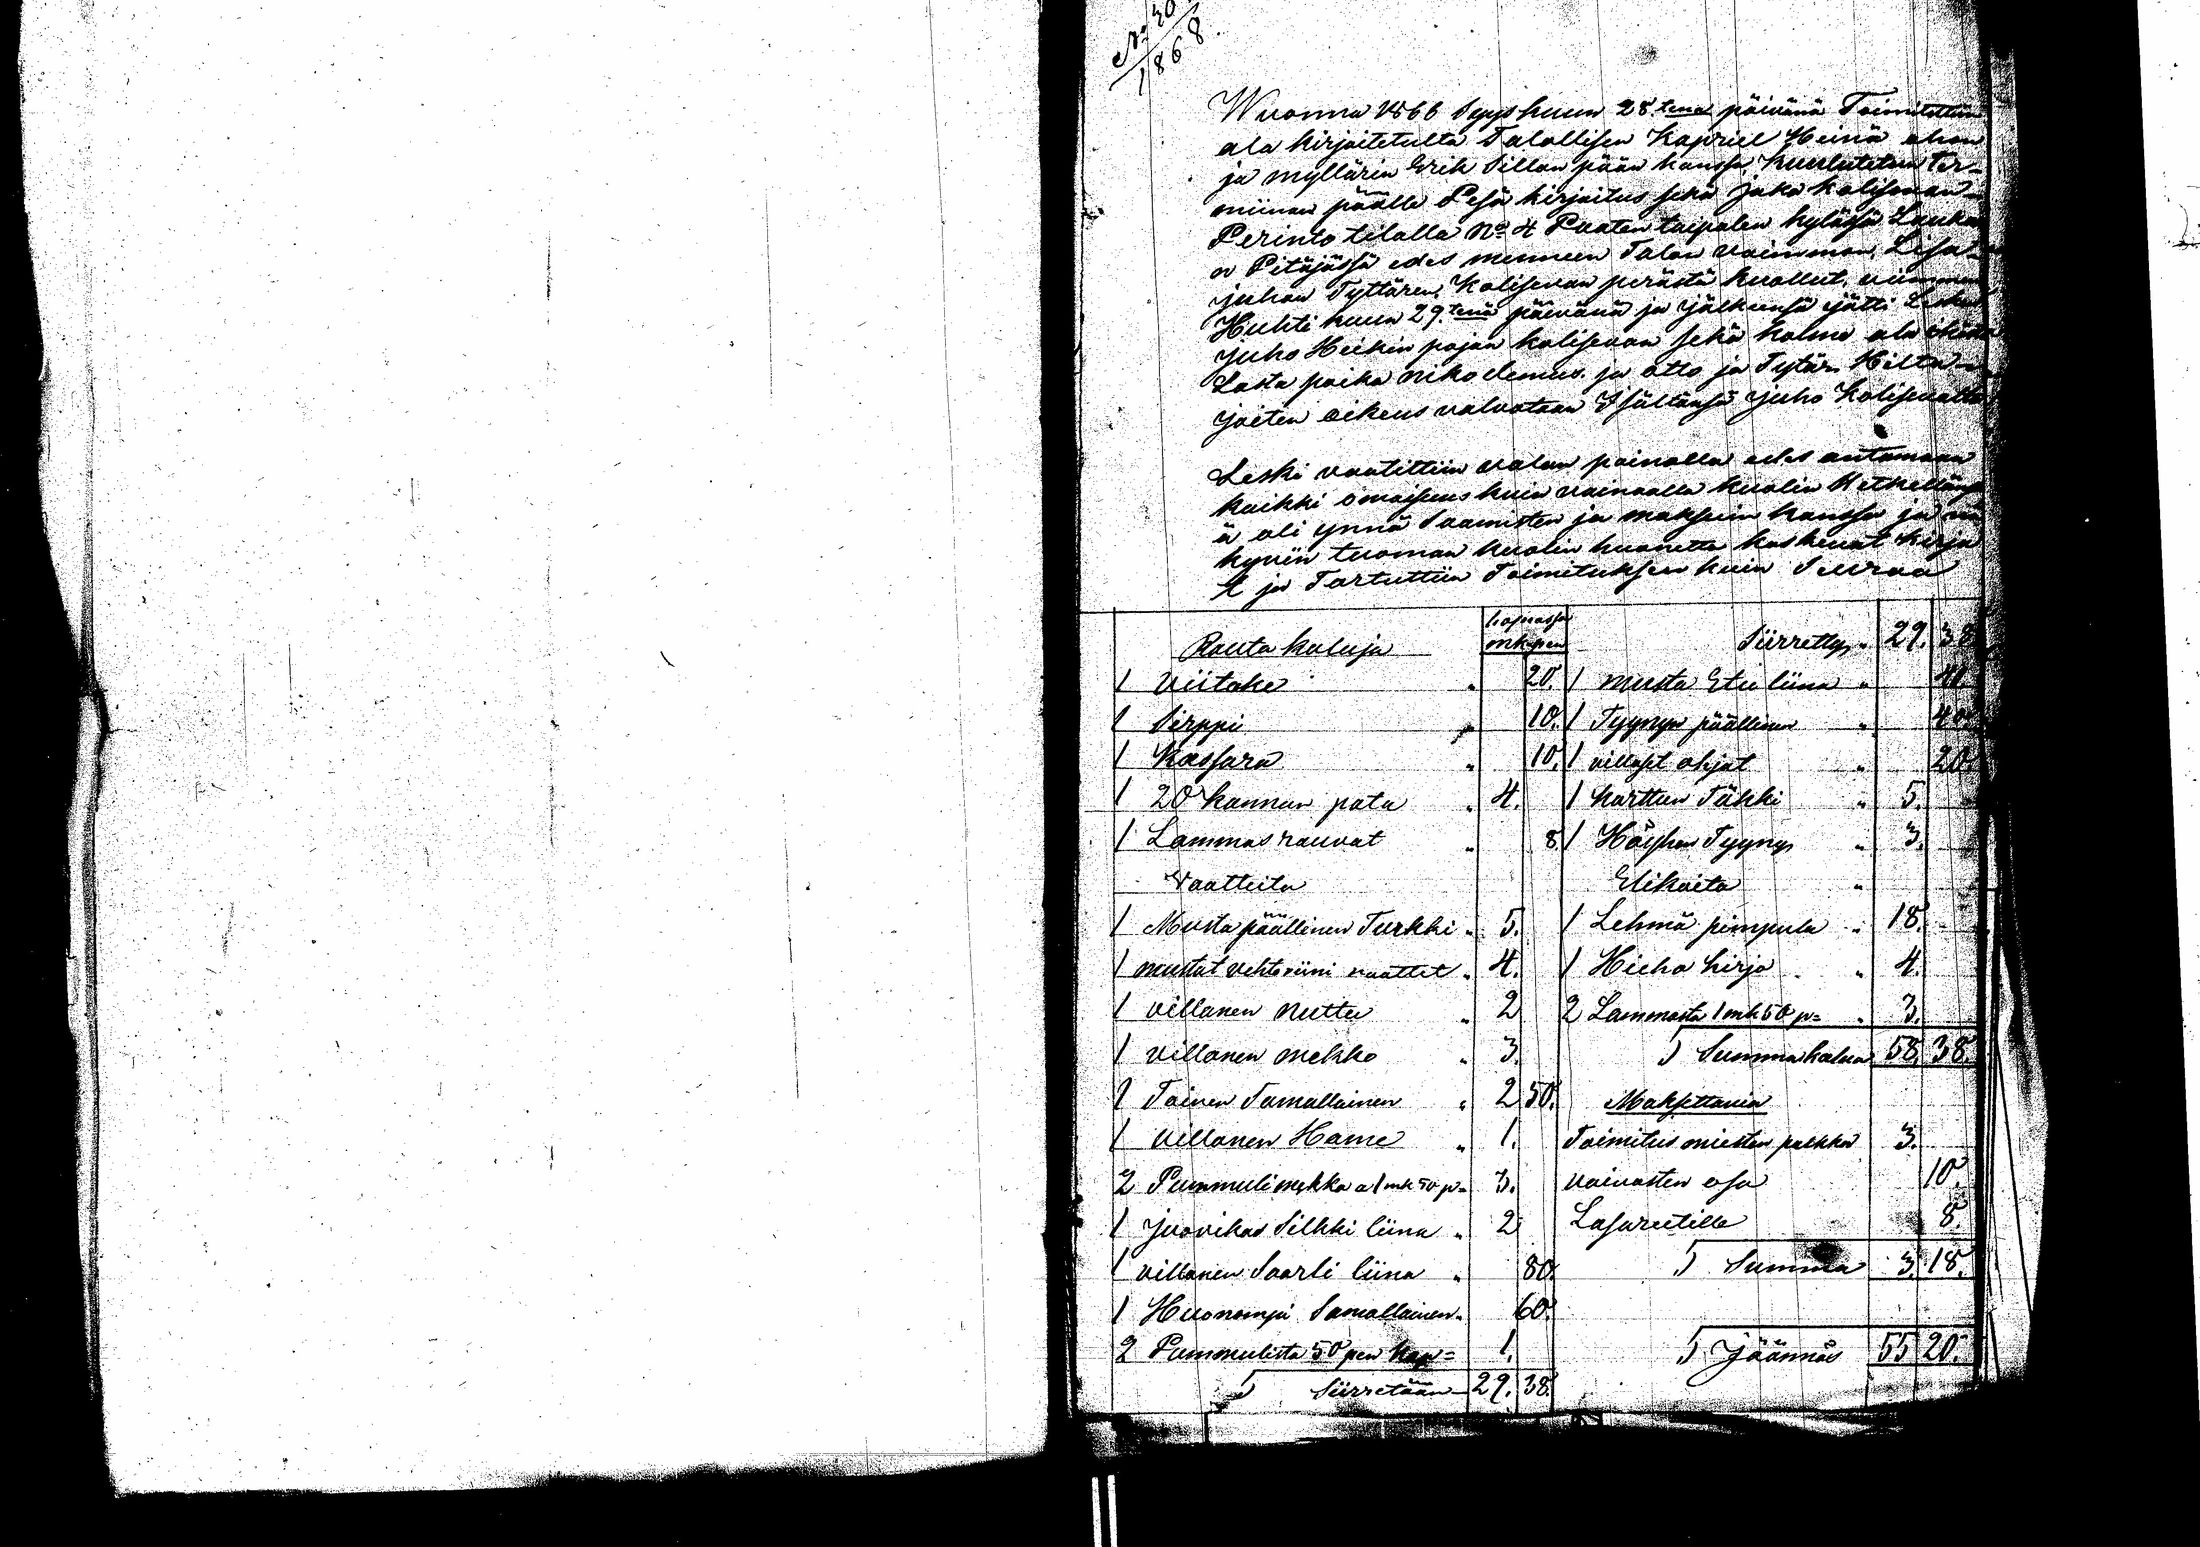 No 30
1868
Wuonna 1866 Syys kuun 28.tena päivänä Toimitettiin
ala kirjoitetulta Talollisen Kapriel Heinä ahon
ja myllärin Erik Sillan pään kanssa, kuulutetun Ter-
miinan päälle Pesä kirjoitus sekä jako kalisevan
Perinto tilalla No 4 Puaten taipalen kylässä Lauka
n Pitäjässä edes mennen Talon vaimman, Lisa
Juhan Tyttären, Kalisevan perästä kuollut, viimmen
Huhti kuun 29.tenä päivänä ja jälkeensä jätti Lesken
juho Heikin pojan kalisevan sekä kolme ala ikäistä
Lasta poika nikodemus ja otto ja Tytär Hilta
joiten oikeus valvotaan Isältänsä juho Kalisevalta
Leski vaatittiin valan painolla edes antamaan
kaikki omaisuus kuin vainaalla kuolin Hetkellänsä
ä oli ynnä Saamisten ja maksuin kanssa ja nä
kyviin tuoman kuolin huonetta koskevat kirja
t ja Tartuttiin Toimituksen kuin Seuraa
hopiassa
Rauta kaluja mk pen Siirrettyy " 29. 38
1 Viitake " 20. 1 musta Etu liina " 40
1 Sirppi " 10. 1 Tyynyn päällinen " 40
1 Kassara " 10. 1 villaset ohjat " 20
1 20 kannun pata " 4. 1 karttun Täkki " 5.
1 Lammas rauvat " 8. 1 Höyhen Tyyny " 3.
Vaatteita Elikoita "
1 Musta päällinen Turkki " 5. 1 Lehmä pimpula " 18.
1 mustat vehtoriini vaattet " 4. 1 Hieho kirjo " 4.
1 villanen nuttu " 2 2 Lammasta 1 mk 50 p= " 3.
1 villanen mekko " 3. Summa kalua 58. 38.
1 Toinen Samallainen " 2 50. Maksettavia
1 villanen Hame " 1. Toimitus miesten palkka 3.
2 Pummuli mekko a 1 mk 50 p= 3. vaivasten osa 10.
1 juovikas Silkki liina " 2 Lasareetille 8.
1 villanen Saarli liina " 80. Summa 3. 18.
1 Huonompi Samallainen " 60.
2 Pummulista 50 pen kap= 1. Jäännös 55 20.
Siirretään 29. 38.